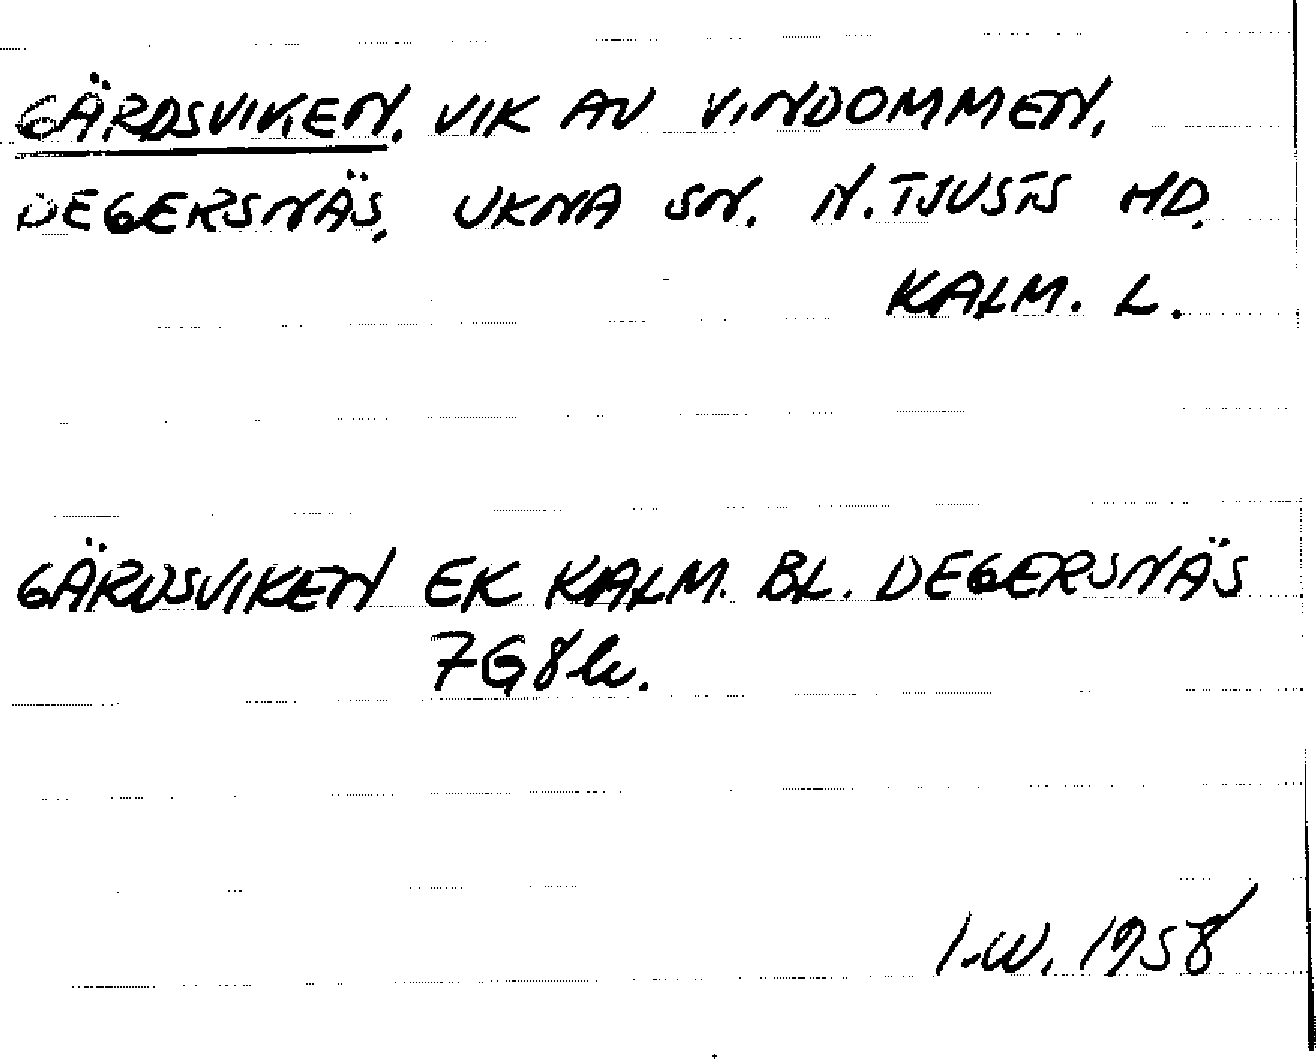 GÄRDSVIKEN. VIK AV VINDOMMEN,
DEGERSNÄS, UKNA SN. N. TJUSTS HD.
KALM. L.
GÄRDSVIKEN EK KALM. BL. DEGERSNÄS
7G8b.
I.W. 1958